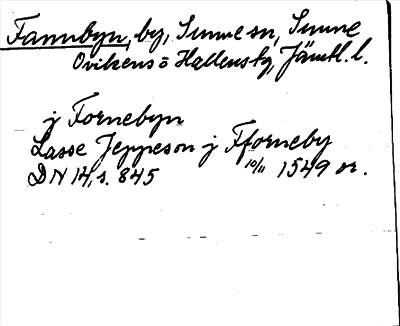 Fannbyn, by, Sunne sn, Sunne
Ovikens o Hallens tg, Jämtl. l.
j Fornebyn
Lasse Jeppeson j Fforneby
DN 14, s. 845 10/11 1549 or.